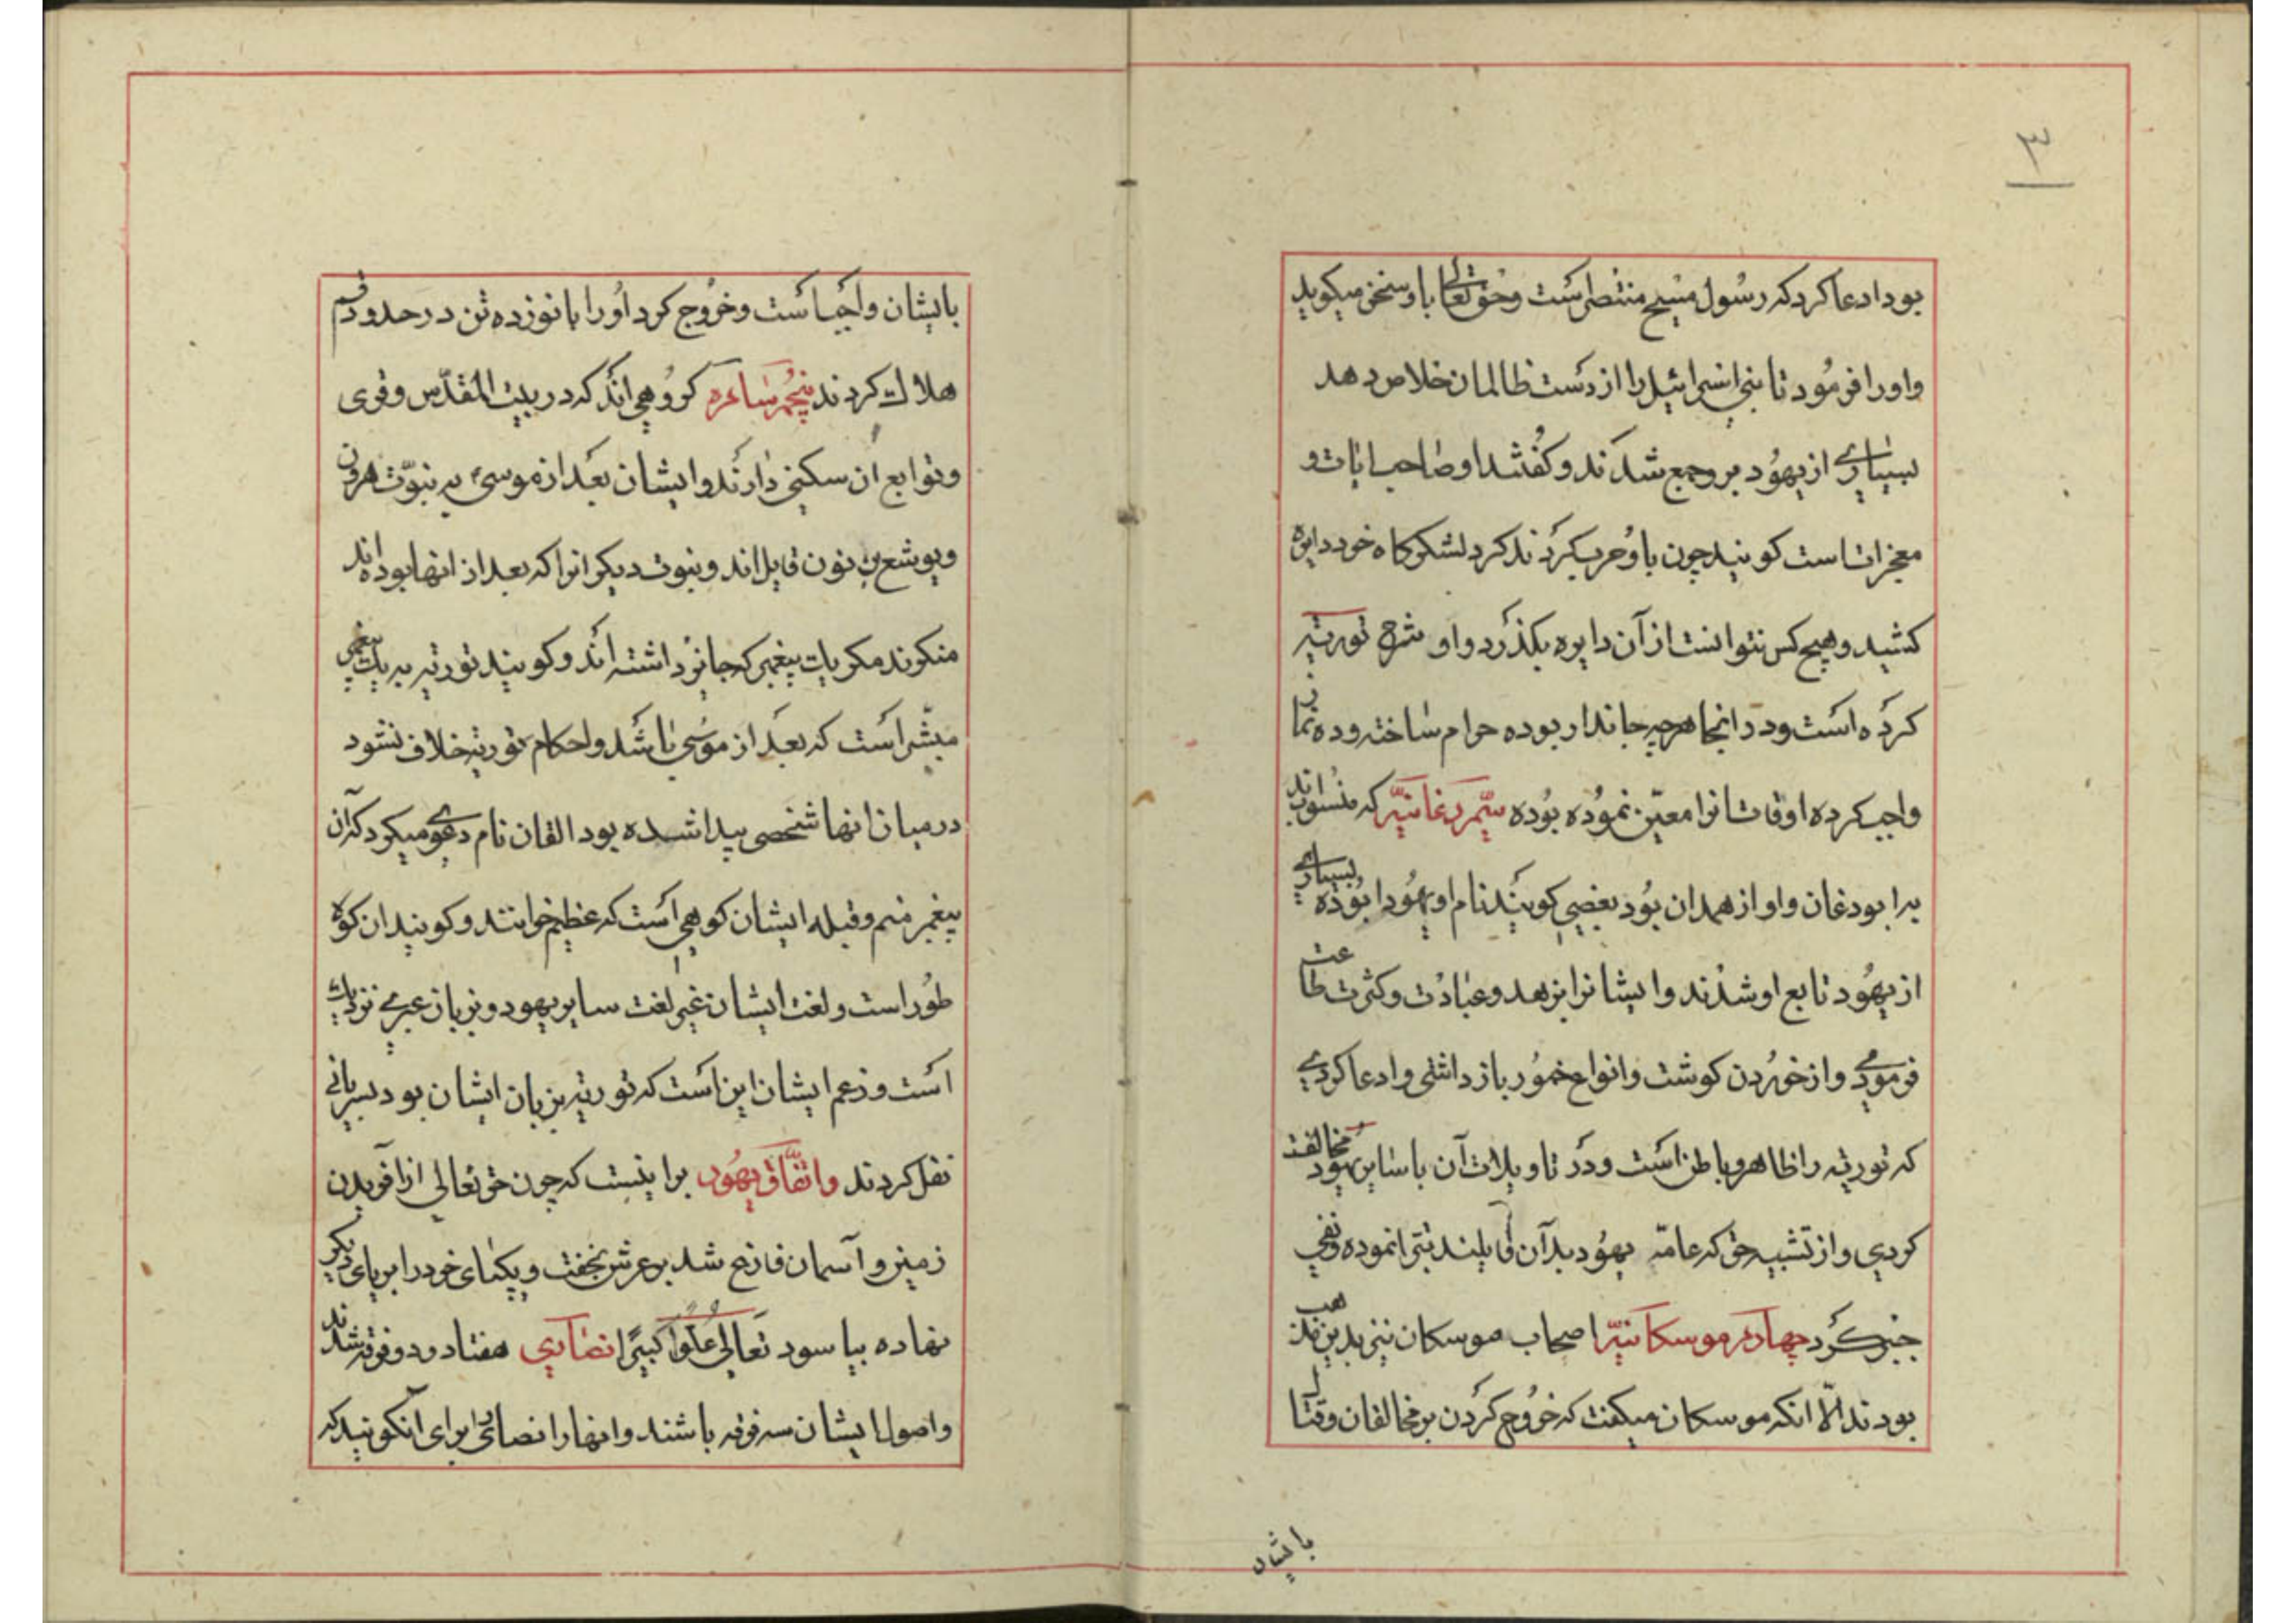 ۳
بود ادعا کرد که رسول مسیح منتظر است و حق تعالی با او سخن میکوید
و اورا فرمود تا بنی اسرائیل را از دست ظالمان خلاص دهد
بسیاری از یهود بر و جمع شدند و کفتند او صاحب ایات و
معجزاتست کویند چون با او حرب کردند کرد لشکرکاه خود دایره
کشید و هیچ کس نتوانست از آن دایره بکذرد و او شرح توریه
کرده است و در انجا هرچه جاندار بوده حرام ساخته و ده نماز
واجب کرده اوقات انرا معین نموده بوده سیم یودغانیّه که منسوب اند
به ابو دغان و او از همدان بود بعضی کویند نام او یهودا بوده بسیاری
از یهود تابع او شدند و ایشانرا بزهد و عبادت و کثرت طاعت
فرمودی و از خوردن کوشت و انواع خمور باز داشتی و ادعا کردی
که توریه را ظاهر و باطن است و در تاویلات آن با سایر یهود مخالفت
کردی و از تشبیه حق که عامّه یهود بدآن قایلند تبرّا نموده و نفی
جبر کرد چهارم موسکانیّه اصحاب موسکان نیز بدین مذهب
بودند الّا انکه موسکان میکفت که خروج کردن بر مخالفان و قتال
بایشان
بایشان واجبست و خروج کرد اورا با نوزده تن در حدود قم
هلاک کردند پنجم سامره کروهی اند که در بیت المقدّس و قری
و توابع آن سکنی دارند و ایشان بعد از موسی به نبوّت هرون
و یوشع بن نون قایل اند و نبوت دیکرانرا که بعد از انها بوده اند
منکرند مکر یک پیغمبر که جایز داشته اند و کویند توریه به یک پیغمبر
مبشّر است که بعد از موسی باشد و احکام توریه خلاف نشود
در میان انها شخصی پیدا شده بود القان نام دعوی میکرد که آن
پیغمبر منم و قبله ایشان کوهی است که عظیم خوانند و کویند ان کوه
طور است و لغت ایشان غیر لغت سایر یهود و بزبان عبری نزدیک
است و زعم ایشان این است که توریه بزبان ایشان بود بسریانی
نقل کردند و اتّفاق یهود بر اینست که چون حق تعالی از آفریدن
زمین و آسمان فارغ شد بر عرش بخفت و یکپای خود را بر پای دیکر
نهاده بیاسود تعالی علوّا کبیرًا نصاری هفتاد و دو فرقه شدند
و اصول ایشان سه فرقه باشند و انها را نصاری برای آنکویند که